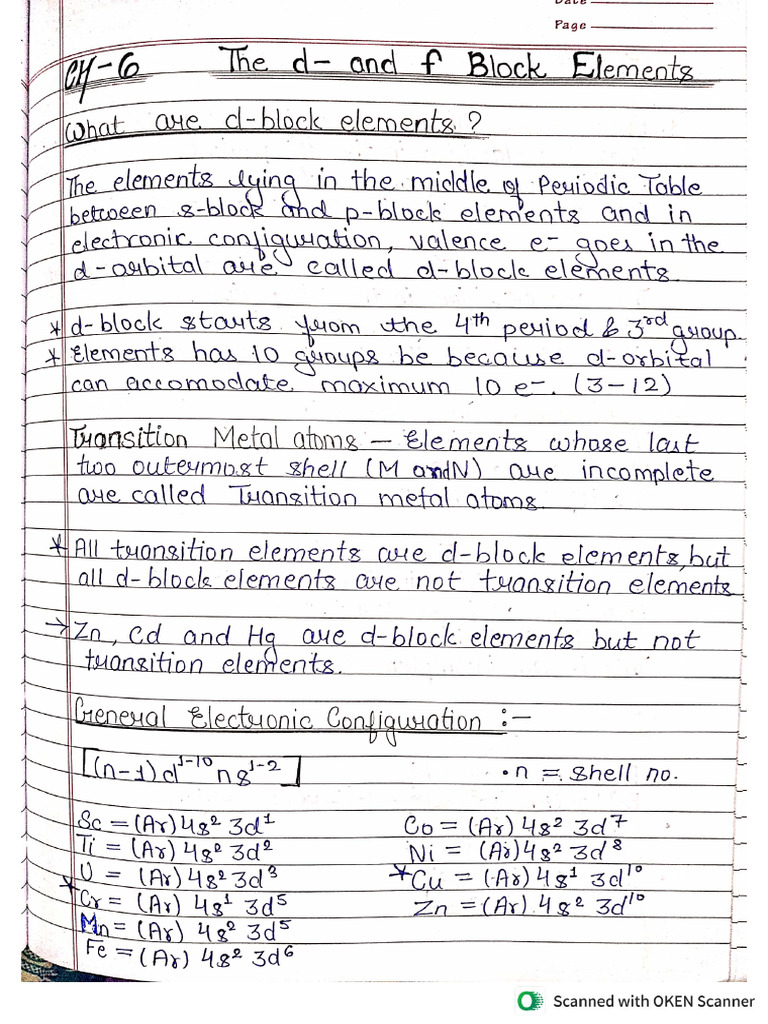 Date
Page
CH-6 The d- and f Block Elements
What are d-block elements?
The elements lying in the middle of Periodic Table
between s-block and p-block elements and in
electronic configuration, valence e- goes in the
d-orbital are called d-block elements
* d-block starts from the 4th period & 3rd group.
* Elements has 10 groups be because d-orbital
can accomodate maximum 10 e-. (3-12)
Transition Metal atoms - Elements whose last
two outermost shell (M and N) are incomplete
are called Transition metal atoms.
* All transition elements are d-block elements, but
all d-block elements are not transition elements
→ Zn, Cd and Hg are d-block elements but not
transition elements.
General Electronic Configuration :-
[(n-1)d¹⁻¹⁰ ns¹⁻²] • n = shell no.
Sc = (Ar) 4s² 3d¹ Co = (Ar) 4s² 3d⁷
Ti = (Ar) 4s² 3d² Ni = (Ar) 4s² 3d⁸
U = (Ar) 4s² 3d³ * Cu = (Ar) 4s¹ 3d¹⁰
* Cr = (Ar) 4s¹ 3d⁵ Zn = (Ar) 4s² 3d¹⁰
Mn = (Ar) 4s² 3d⁵
Fe = (Ar) 4s² 3d⁶
Scanned with OKEN Scanner